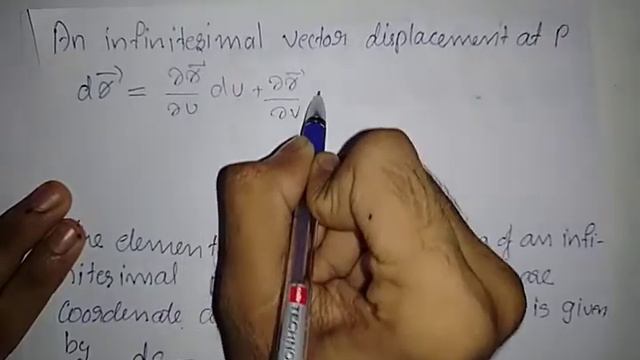 An infinitesimal vector displacement at P
d𝑟⃗ = ∂𝑟⃗/∂u du + ∂𝑟⃗/∂v
element of an infi-
nitesimal are
coordenate is given
by ds
TECHNO